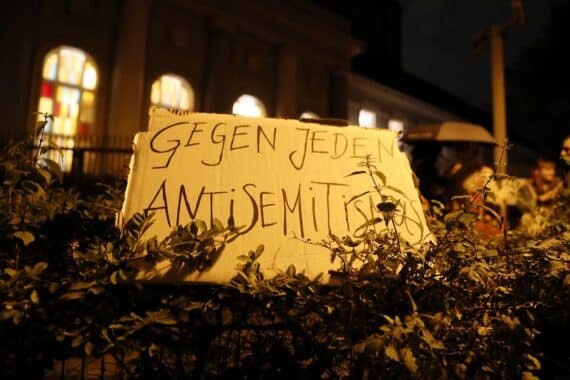 GEGEN JEDEN
ANTiSEMiTiSMUS